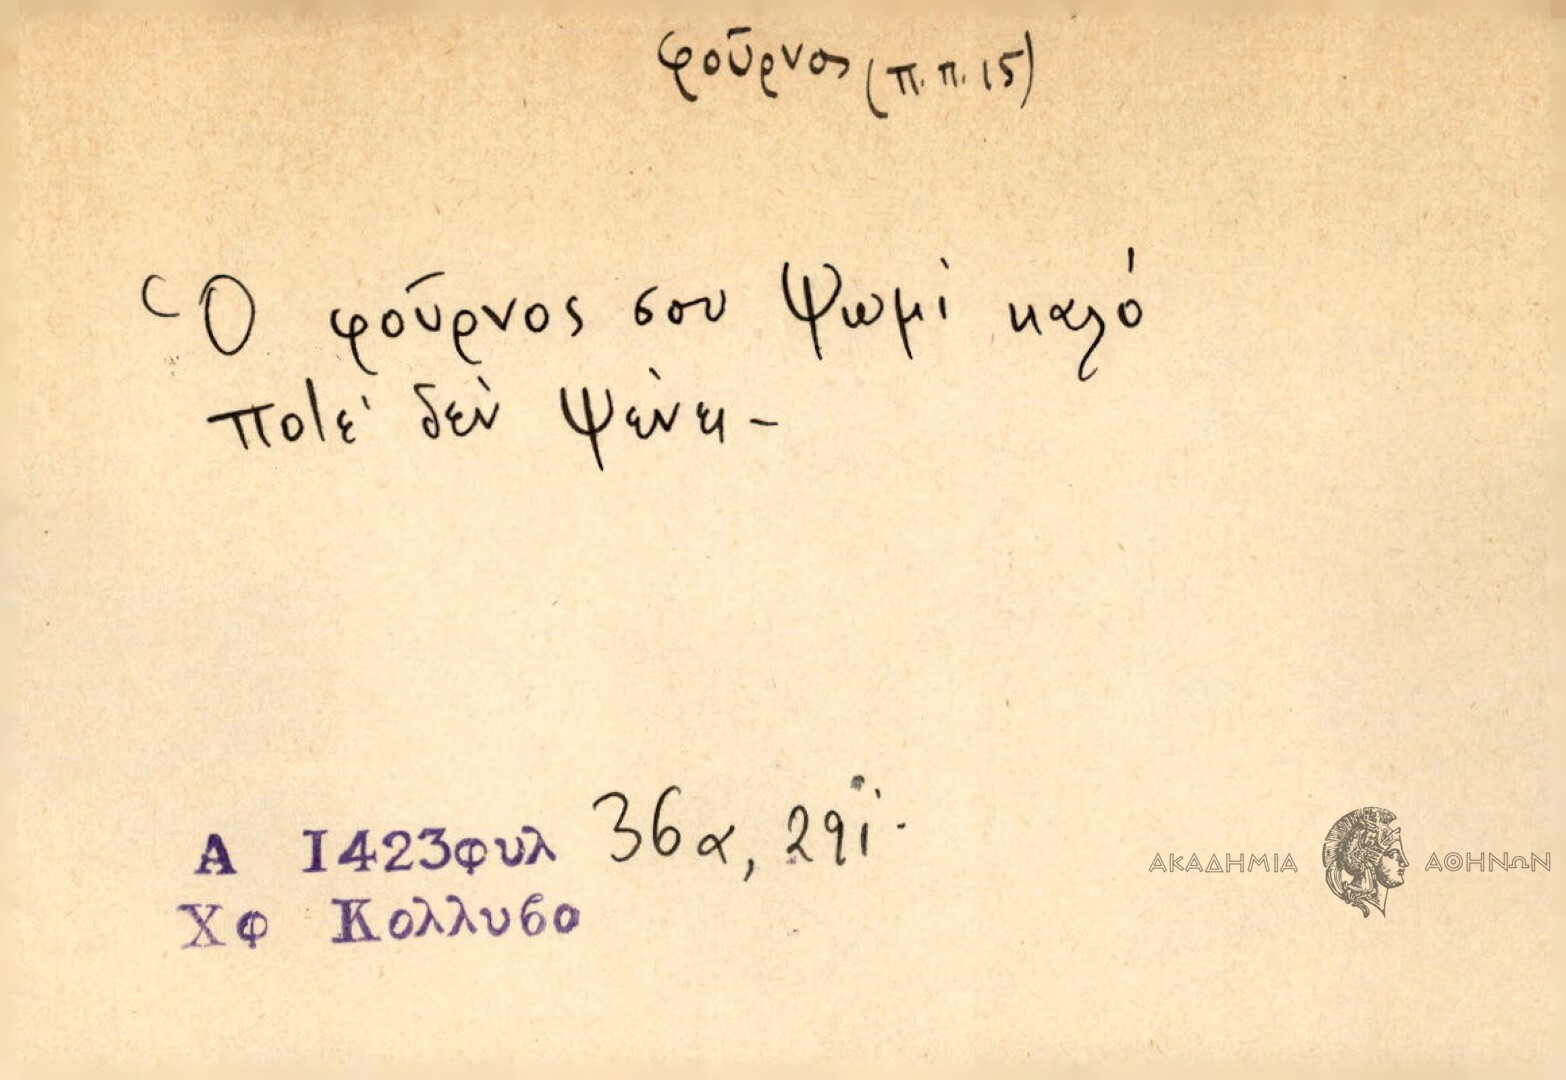 φοῦρνος (π.π. 15)
Ὁ φοῦρνος σου ψωμὶ καλό
ποτὲ δὲν ψένει -
Α 1423φυλ 36α, 29
Χφ Κολλυβα
ΑΚΑΔΗΜΙΑ ΑΘΗΝΩΝ